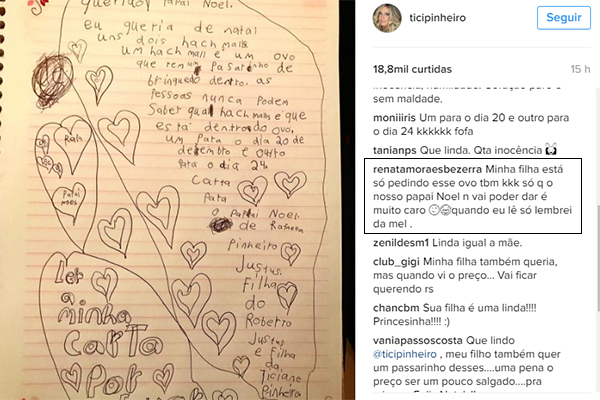 querido Papai Noel.
eu queria de natal
uns dois hach malls
um hach mall é um ovo
que tem um Pasarinho de
brinquedo dentro. as
pessoas nunca podem
Saber qual hach mall é que
está dentro do ovo,
um Para o dia 20 de
dezembro e outro
para o dia 24
Carta
Para
o Papai Noel
de Rafaella
Pinheiro
Justus.
Filha
do
Roberto
Justus
e Filha
da
Ticiane
Pinheiro
Rafa
Papai
noel
Ler
a
minha
CARTA
Por
ticipinheiro
Seguir
18,8mil curtidas
15 h
sem maldade.
moniiiris Um para o dia 20 e outro para
o dia 24 kkkkkk fofa
tanianps Que linda. Qta inocência
renatamoraesbezerra Minha filha está
só pedindo esse ovo tbm kkk só q o
nosso papai Noel n vai poder dar é
muito caro quando eu lê só lembrei
da mel .
zenildesm1 Linda igual a mãe.
club_gigi Minha filha também queria,
mas quando vi o preço... Vai ficar
querendo rs
chancbm Sua filha é uma linda!!!!
Princesinha!!!! :)
vaniapassoscosta Que lindo
@ticipinheiro , meu filho também quer
um passarinho desses....uma pena o
preço ser um pouco salgado....pra